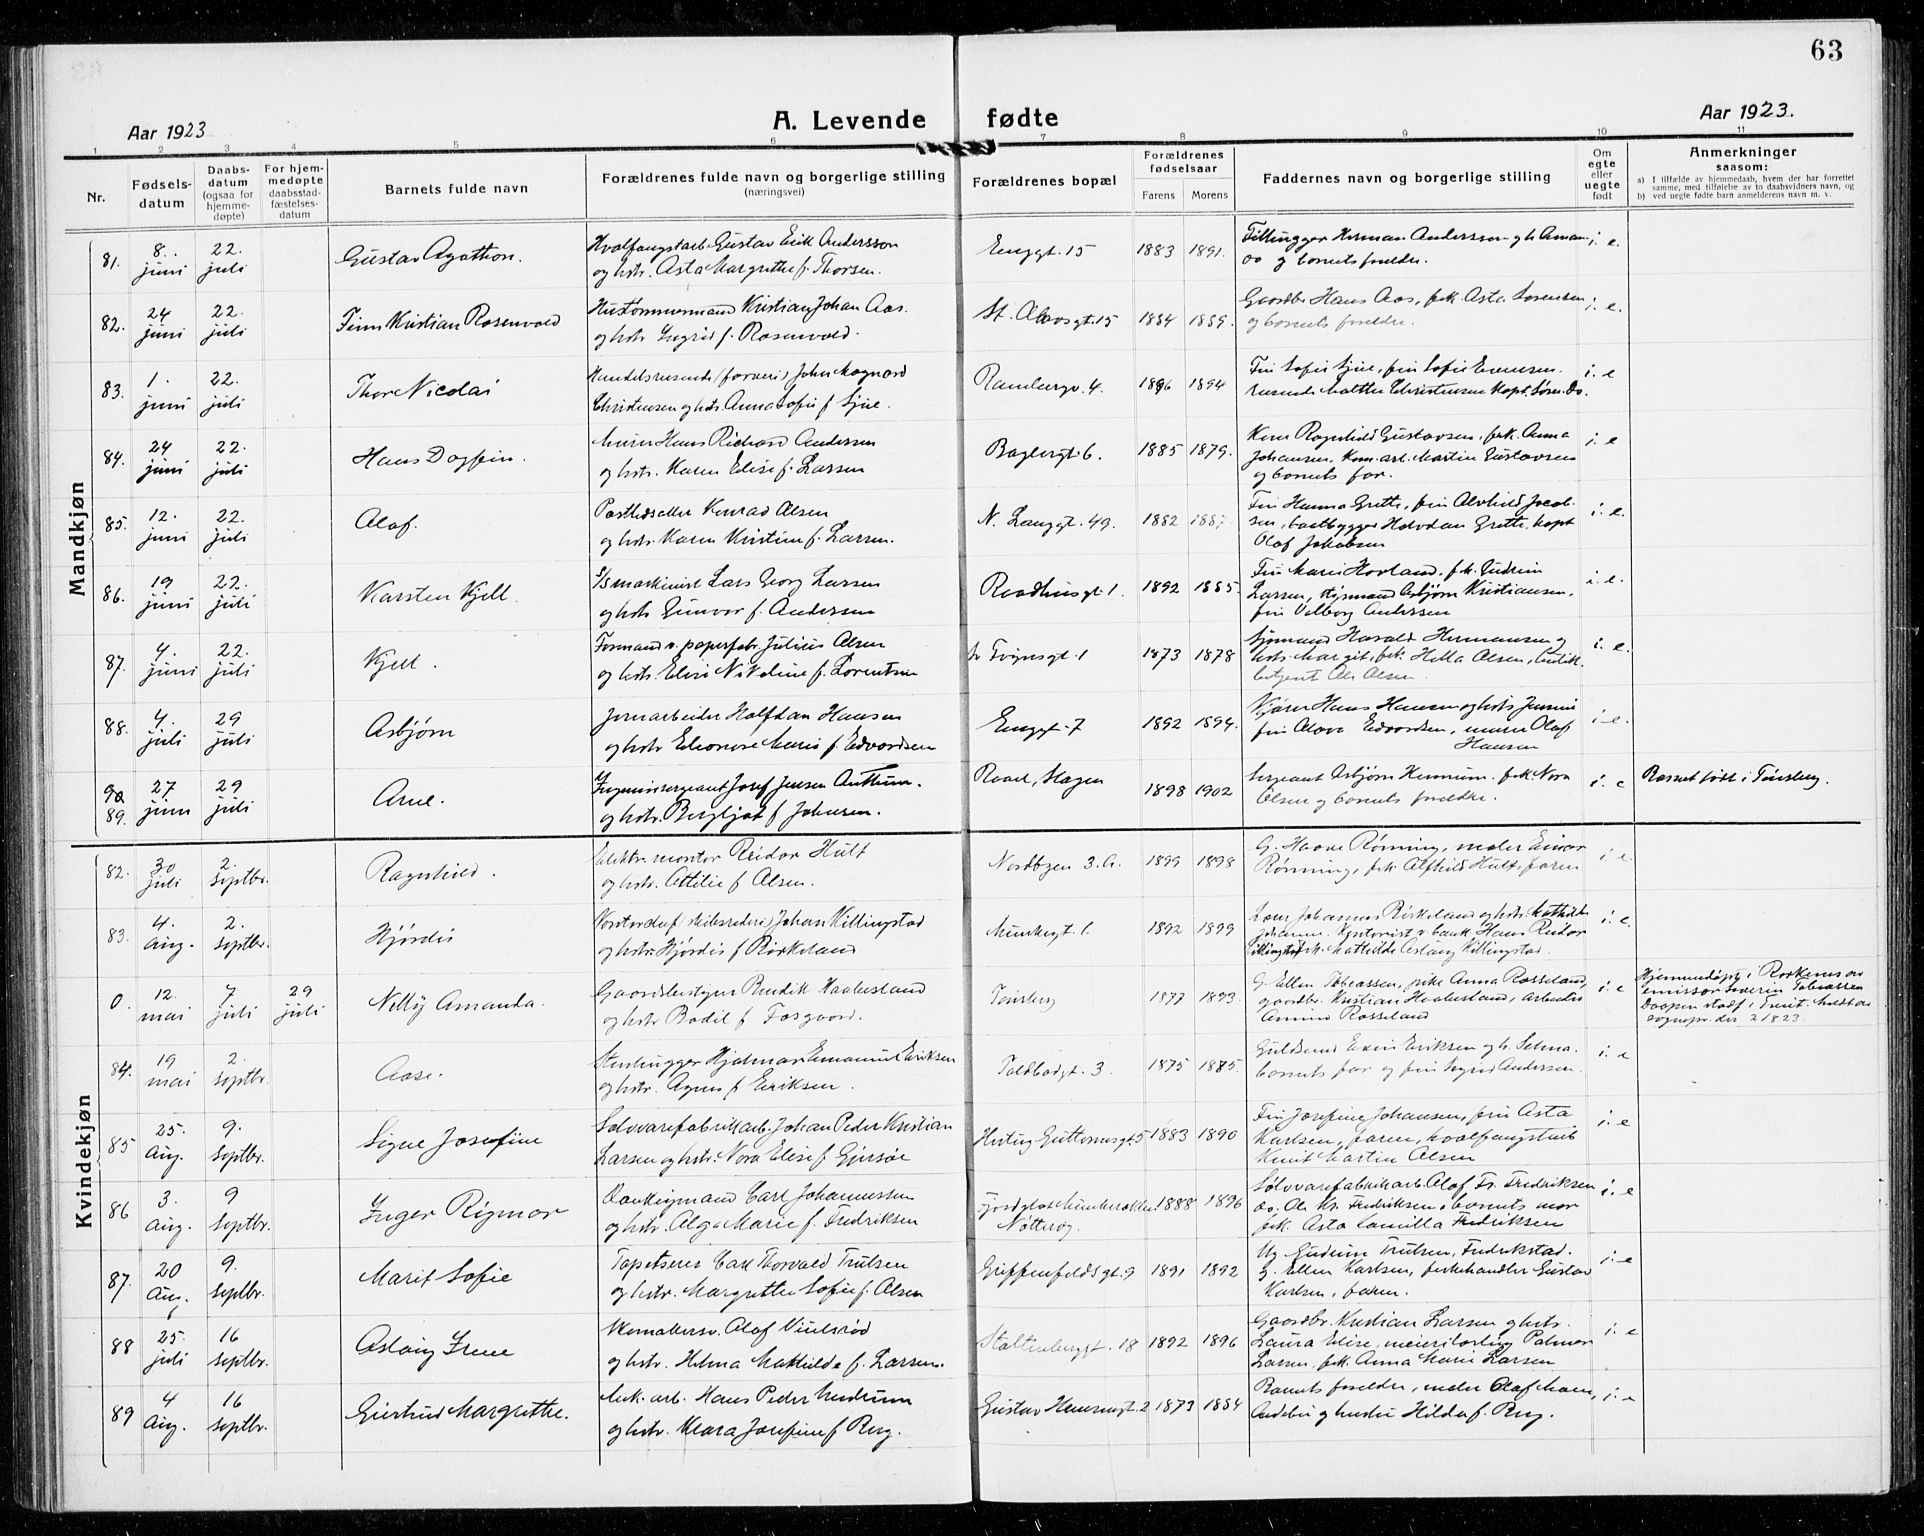 63
Aar 1923
A. Levende fødte
Aar 1923.
1 2 3 4 5 6 7 8 9 10 11
Nr.
Fødsels-
datum
Daabs-
datum
(ogsaa for
hjemme-
døpte)
For hjem-
medøpte
daabsstad-
fæstelses-
datum
Barnets fulde navn
Forældrenes fulde navn og borgerlige stilling
(næringsvei)
Forældrenes bopæl
Forældrenes
fødselsaar
Farens Morens
Faddernes navn og borgerlige stilling
Om
egte
eller
uegte
født
Anmerkninger
saasom:
a) I tilfælde av hjemmedaab, hvem der har forrettet
samme, med tilføielse av to daabsvidners navn, og
b) ved uegte fødte barn anmelderens navn m. v.
Mandkjøn
81. 8. juni 22. juli Gustav Agathon.
Hvalfangstarb. Gustav Erik Andersson
og hstr. Asta Margrethe f. Thorsen.
Enggt. 15 1883 1891.
og barnets forældre.
i. e.
82. 24 juni 22. juli Finn Kristian Rosenvold
Hustømmermand Kristian Johan Aas.
og hstr. Ingrid f. Rosenvold.
St. Olavsgt. 15 1884 1889.
Gaardbr. Hans Aas, frk. Asta Sørensen
og barnets forældre.
i. e.
83. 1. juni 22. juli Thor Nicolai
Handelsreisende (farveri) John Magnard
Christensen og hstr. Anna Sofie f. Lyse.
Rambergv. 4. 1896 1894
i. e
84. 24 juni 22. juli Hans Dagfin.
Murer Hans Richard Andersen
og hstr. Karen Elise f. Larsen
Baglergt. 6. 1885 1879.
Kone Ragnhild Gustavsen, frk. Anna
Johansen, Kom. arb. Martin Gustavsen
og barnets far.
i. e
85. 12. juni 22. juli Olaf.
Postbetsatter Konrad Olsen
og hstr. Karen Kristine f. Larsen.
N. Langgt. 49. 1882 1887.
Fru Hanna Grette, fru Alvhild Jacob-
sen, baatbygger Halvdan Grette, kapt
Olaf Jakobsen
i. e.
86. 19 juni 22. juli Karsten Kjell.
S/S maskinist Lars Georg Larsen
og hstr. Gunvor f. Andersen
Raadhusgt. 1. 1892 1885.
Fru Marie Hovland, frk. Gudrun
Larsen, styrmand Asbjørn Kristiansen,
fru Valborg Andersen
i. e.
87. 4. juni 22. juli Kjell.
Formand v. papirfab. Julius Olsen
og hstr. Elise Nikoline f. Lorentsen
1873 1878
Sjømand Harald Hermansen og
hstr. Margit, frk. Hella Olsen,
i. e.
88. 4. juli 29 juli Asbjørn
Jernarbeider Halfdan Hansen
og hstr. Eleonore Marie f. Edvardsen
Enggt. 7 1892 1894.
Kjører Hans Hansen og hstr. Jensine
fru Olava Edvardsen, murer Olaf
Hansen
i. e.
90
89. 27 juni 29 juli Arne.
Ingeniørsergeant Josef Jensen Anthun.
og hstr. Bergljot f Johnsen.
Raael, Slagen 1898 1902
Sergeant Asbjørn Hennum. frk. Nora
Olsen og barnets forældre.
i. e
Barnet født i Tønsberg.
Kvindekjøn
82. 30 juli 2. septbr. Ragnhild.
Elektr. montør Reidar Hult
og hstr. Ottilie f Olsen.
Nordbyen 3. A. 1899 1898
Rønning, frk. Alfhild Hult, faren
i. e.
83. 4. aug. 2. septbr. Hjørdis
Johan Killingstad
og hstr. Hjørdis f Birkeland
Munkegt. 1. 1892 1899
i. e.
0. 12. mai 7 juli 29 juli Nelly Amanda.
Gaardsbestyrer Bendik Haabesland
og hstr. Bodil f Fosgaard.
Tønsberg 1877 1893.
G. Ellen Tobiassen, pike Anna Rosseland,
gaardbr. Kristian Haabesland, arbeider
Rosseland
i. e
84. 19 mai 2. septbr. Aase.
Stenhugger Hjalmar Emanuel Eriksen
og hstr. Agnes f Eriksen.
Toldbodgt. 3. 1875 1885.
Guldsmed Eriksen og h. Selma.
barnets far og fru Sigrid Andersen.
i. e
85 25. Aug. 9. septbr. Signe Josefine
Sølvvarefabrikarb. Johan Peder Kristian
Larsen og hstr. Nora Elise f Gjersøe
Hertug Guttormsgt. 5 1883 1890
Fru Josefine Johansen, fru Asta
Karlsen, faren, hvalfangstarb
Knut Martin Olsen
i. e
86 3. Aug. 9 septbr. Inger Rigmor
Bankrigmand Carl Johannessen
og hstr. Olga Marie f. Fredriksen
Nøtterøy 1888 1896
Sølvvarefabrikarb. Olaf Fr. Fredriksen
Do. Ole Kr. Fredriksen, barnets mor
frk. Asta Camilla Fredriksen
i. e
87. 20 Aug. 9. septbr. Marit Sofie
Tapetserer Carl Thorvald Trulsen
og hstr. Margrethe Sofie f. Olsen
Griffenfeldsgt. 9 1891 1892
Ug. Gudrun Trulsen, Fredrikstad.
G. Ellen Karlsen, fiskehandler Gustav
Karlsen, faren.
i. e
88 25. juli 16 septbr. Aslaug Irene
Olaf Vielsrød
og hstr. Helma Mathilde f. Larsen.
Stoltenberggt. 18 1892 1896
Gaardbr. Kristian Larsen og hstr.
Laura Elise, meierilærling Palmer
Larsen, frk. Anna Marie Larsen
i. e
89 4 Aug. 16 septbr. Gjertrud Margrethe.
Mek. arb. Hans Peder Undrum
og hstr. Klara Josefine f Berg.
Gustav Hansensgt. 2 1873 1884
Barnets forældre, maler Olaf Moen,
Andebu og hustru Hilda f. Berg.
i. e